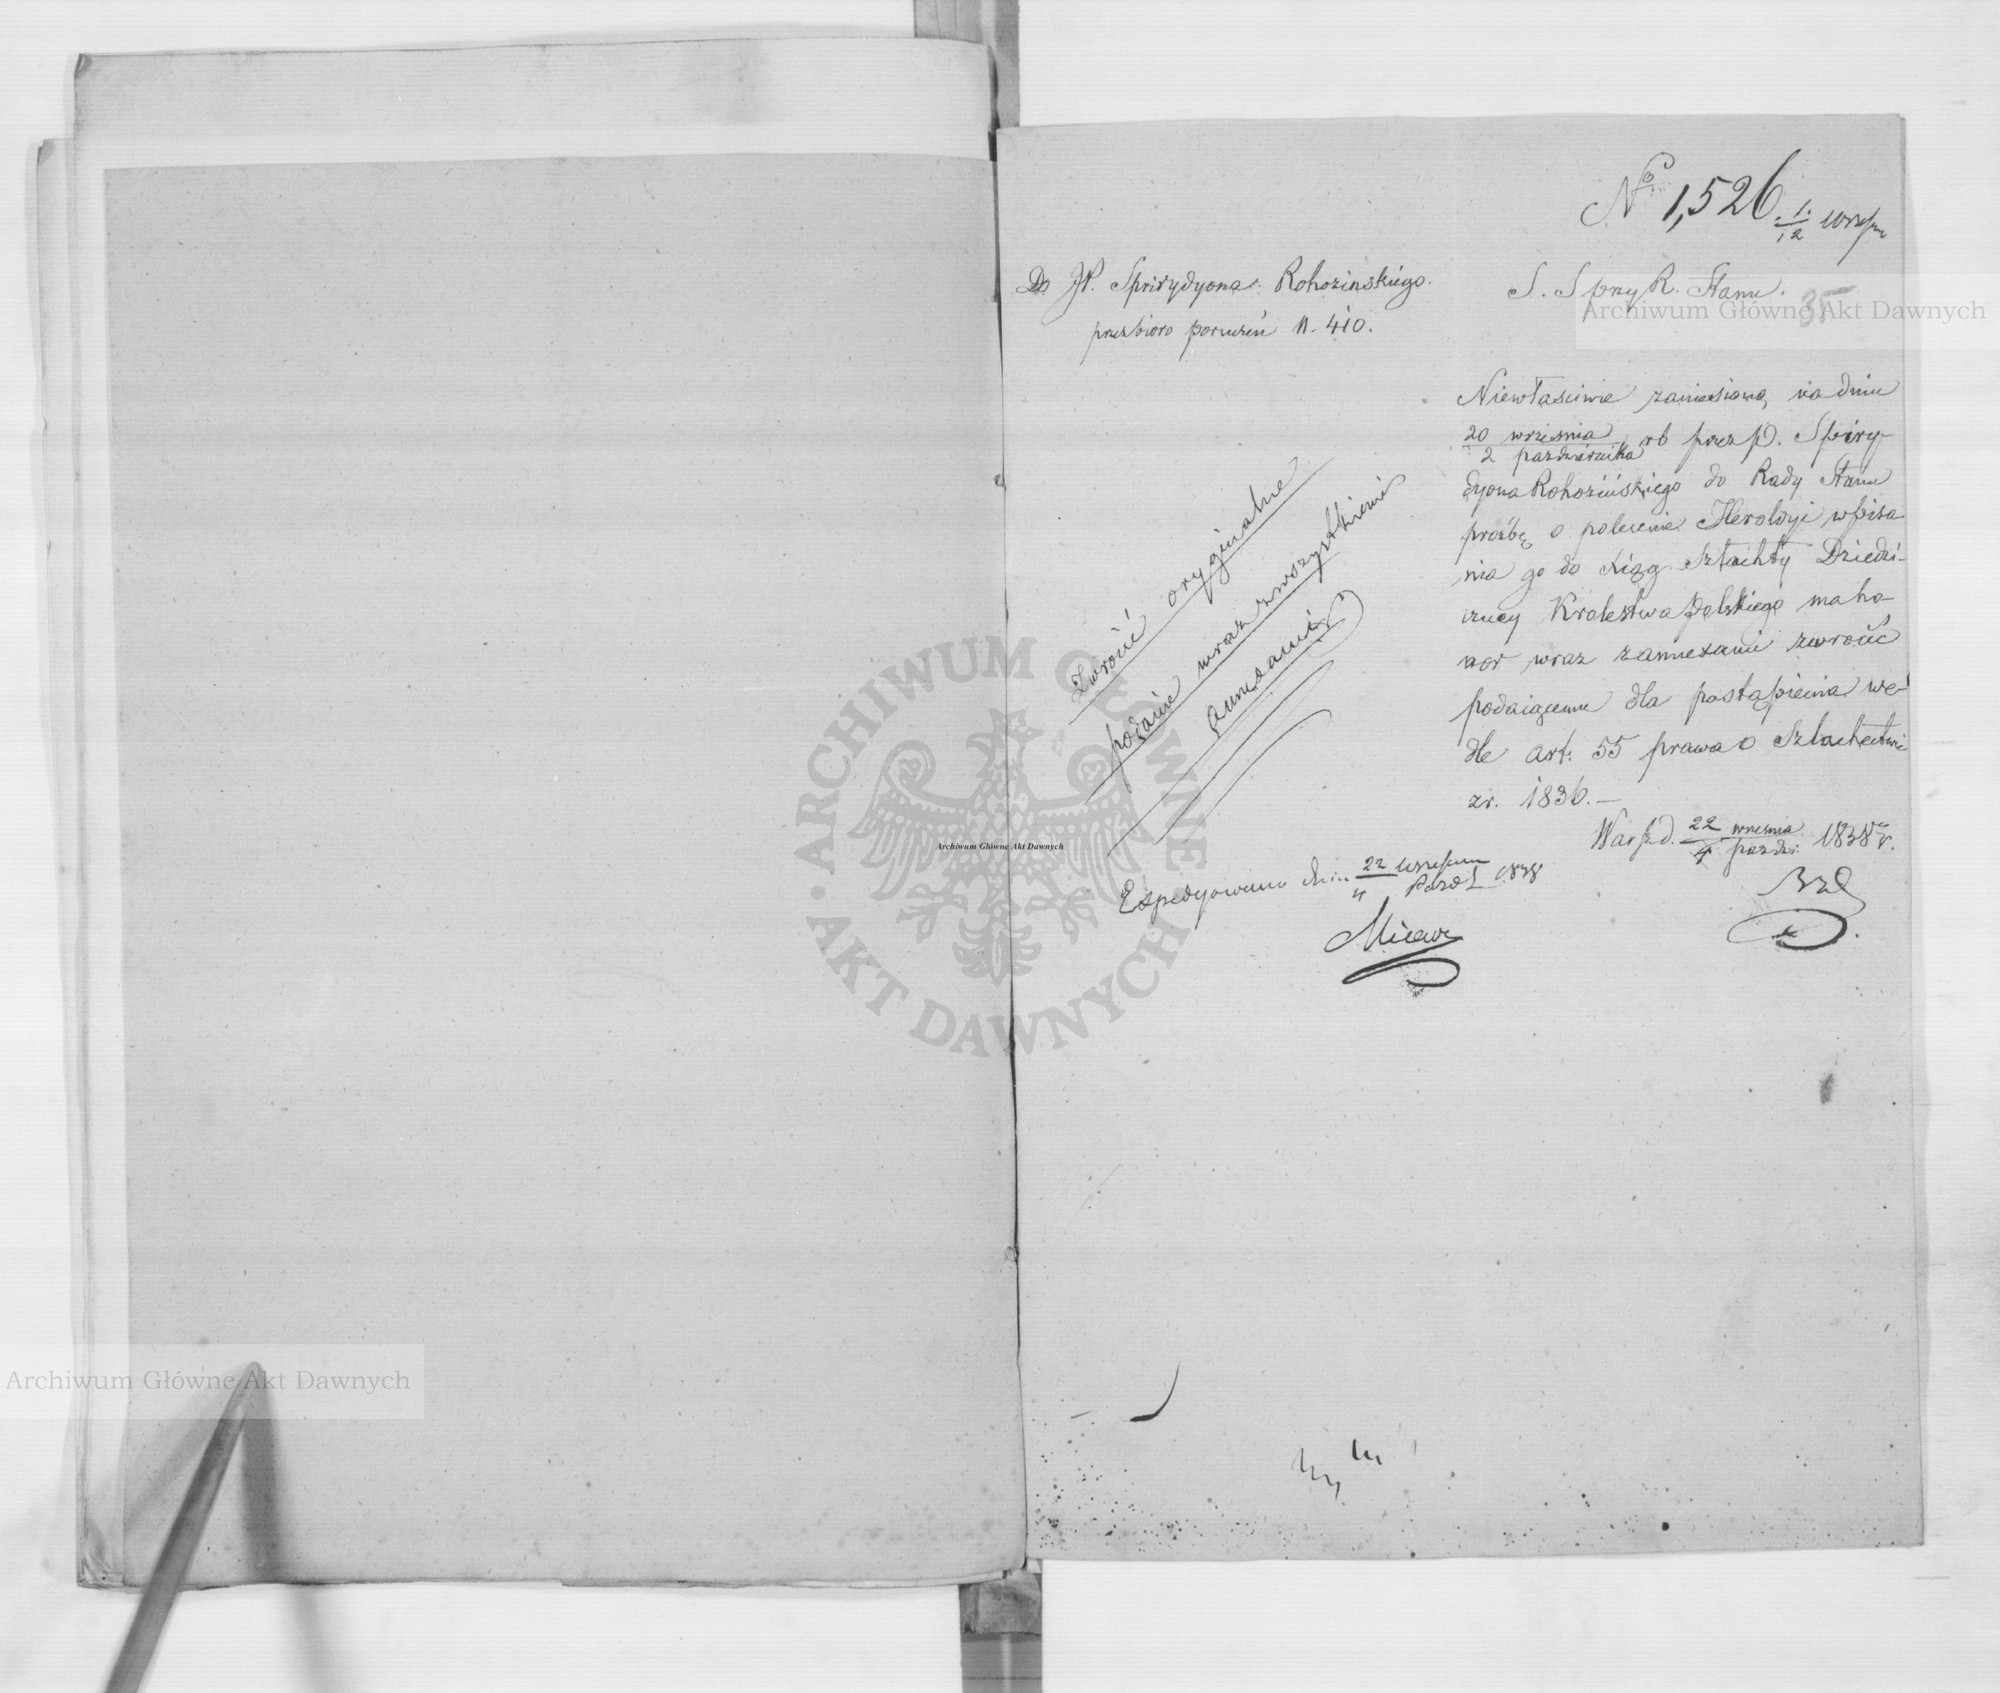 No 1,526. 1/12 Wrześn
35
Do JP. Spirydyona Rohozinskiego.
przez bioro poruczeń N. 410.
S. S przy R. Stanu.
Niewłaściwie zaniesioną, na dniu
20 września / 2 października rb przez p. Spiry-
dyona Rohozińskiego do Rady Stanu
prożbę o polecenie Heroldyi wpisa
nia go do Xiąg Szlachty Dziedzi-
cznej Krolestwa Polskiego ma ho-
nor wraz zannexami zwrócić
podaiącemu dla postąpienia we-
dle art: 55 prawa o Szlachectwie
zr. 1836. —
Warszd. 22 września / 4 paździ: 1838 r.
Zwrócić oryginalne
podanie wraz zwszystkiemi
annexami
Expedyowano dnia 22 Wrześnn / 4 Pazdz 1838
Archiwum Główne Akt Dawnych
ARCHIWUM GŁÓWNE AKT DAWNYCH
Archiwum Główne Akt Dawnych
Archiwum Główne Akt Dawnych